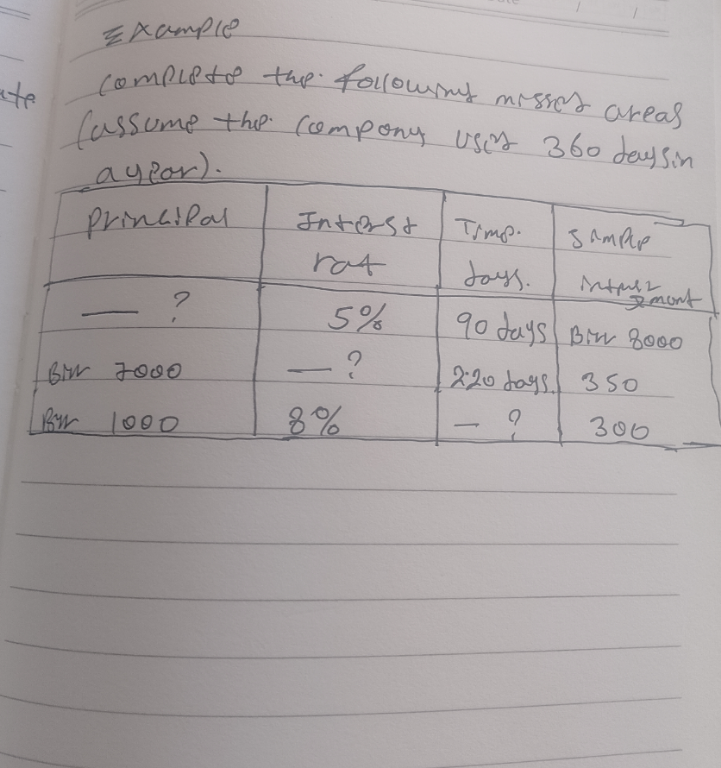 ate
Example
complete the following misses areas
(assume the company uses 360 days in
a year).
Principal Interst rat Time days. Simple
— ? 5% 90 days Birr 8000
Birr 7000 — ? 220 days 350
Birr 1000 8% — ? 300